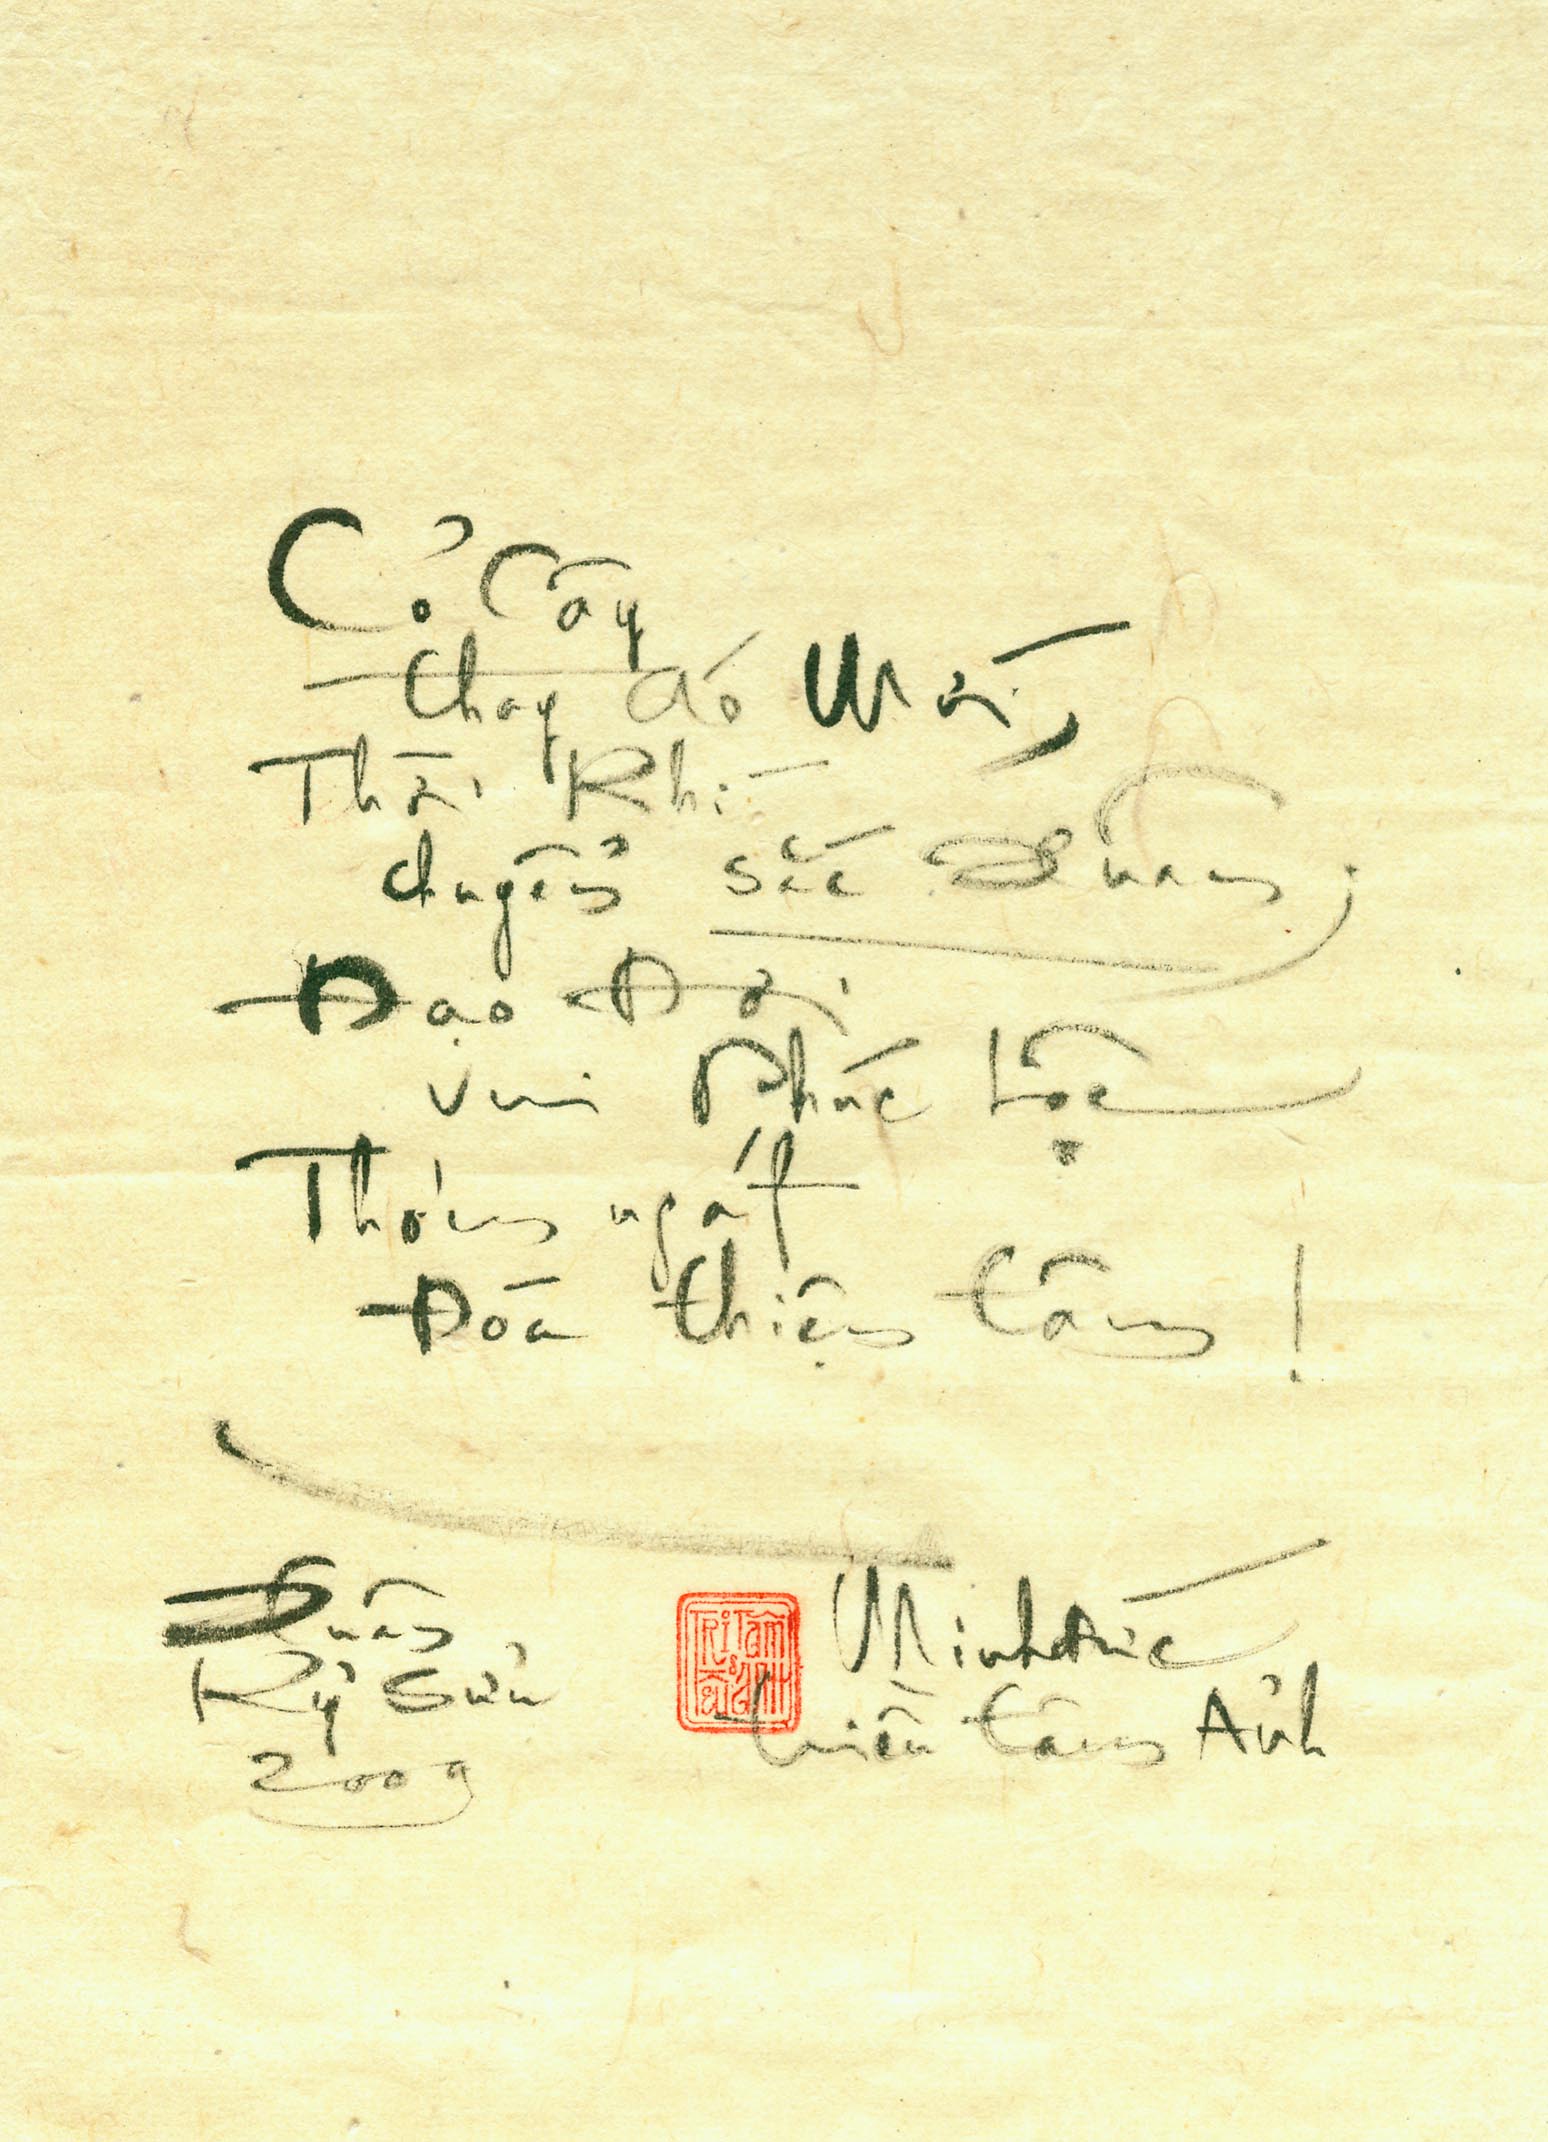 Cỏ Cây
thay áo Mới,
Thời Khí
chuyển sắc Xuân;
Đạo Đời
vui Phúc Lộc
Thơm ngát
Đóa thiện tâm!
Xuân
Kỷ Sửu
2009
TRiTâm
Minh Đức
triều tâm Ảnh